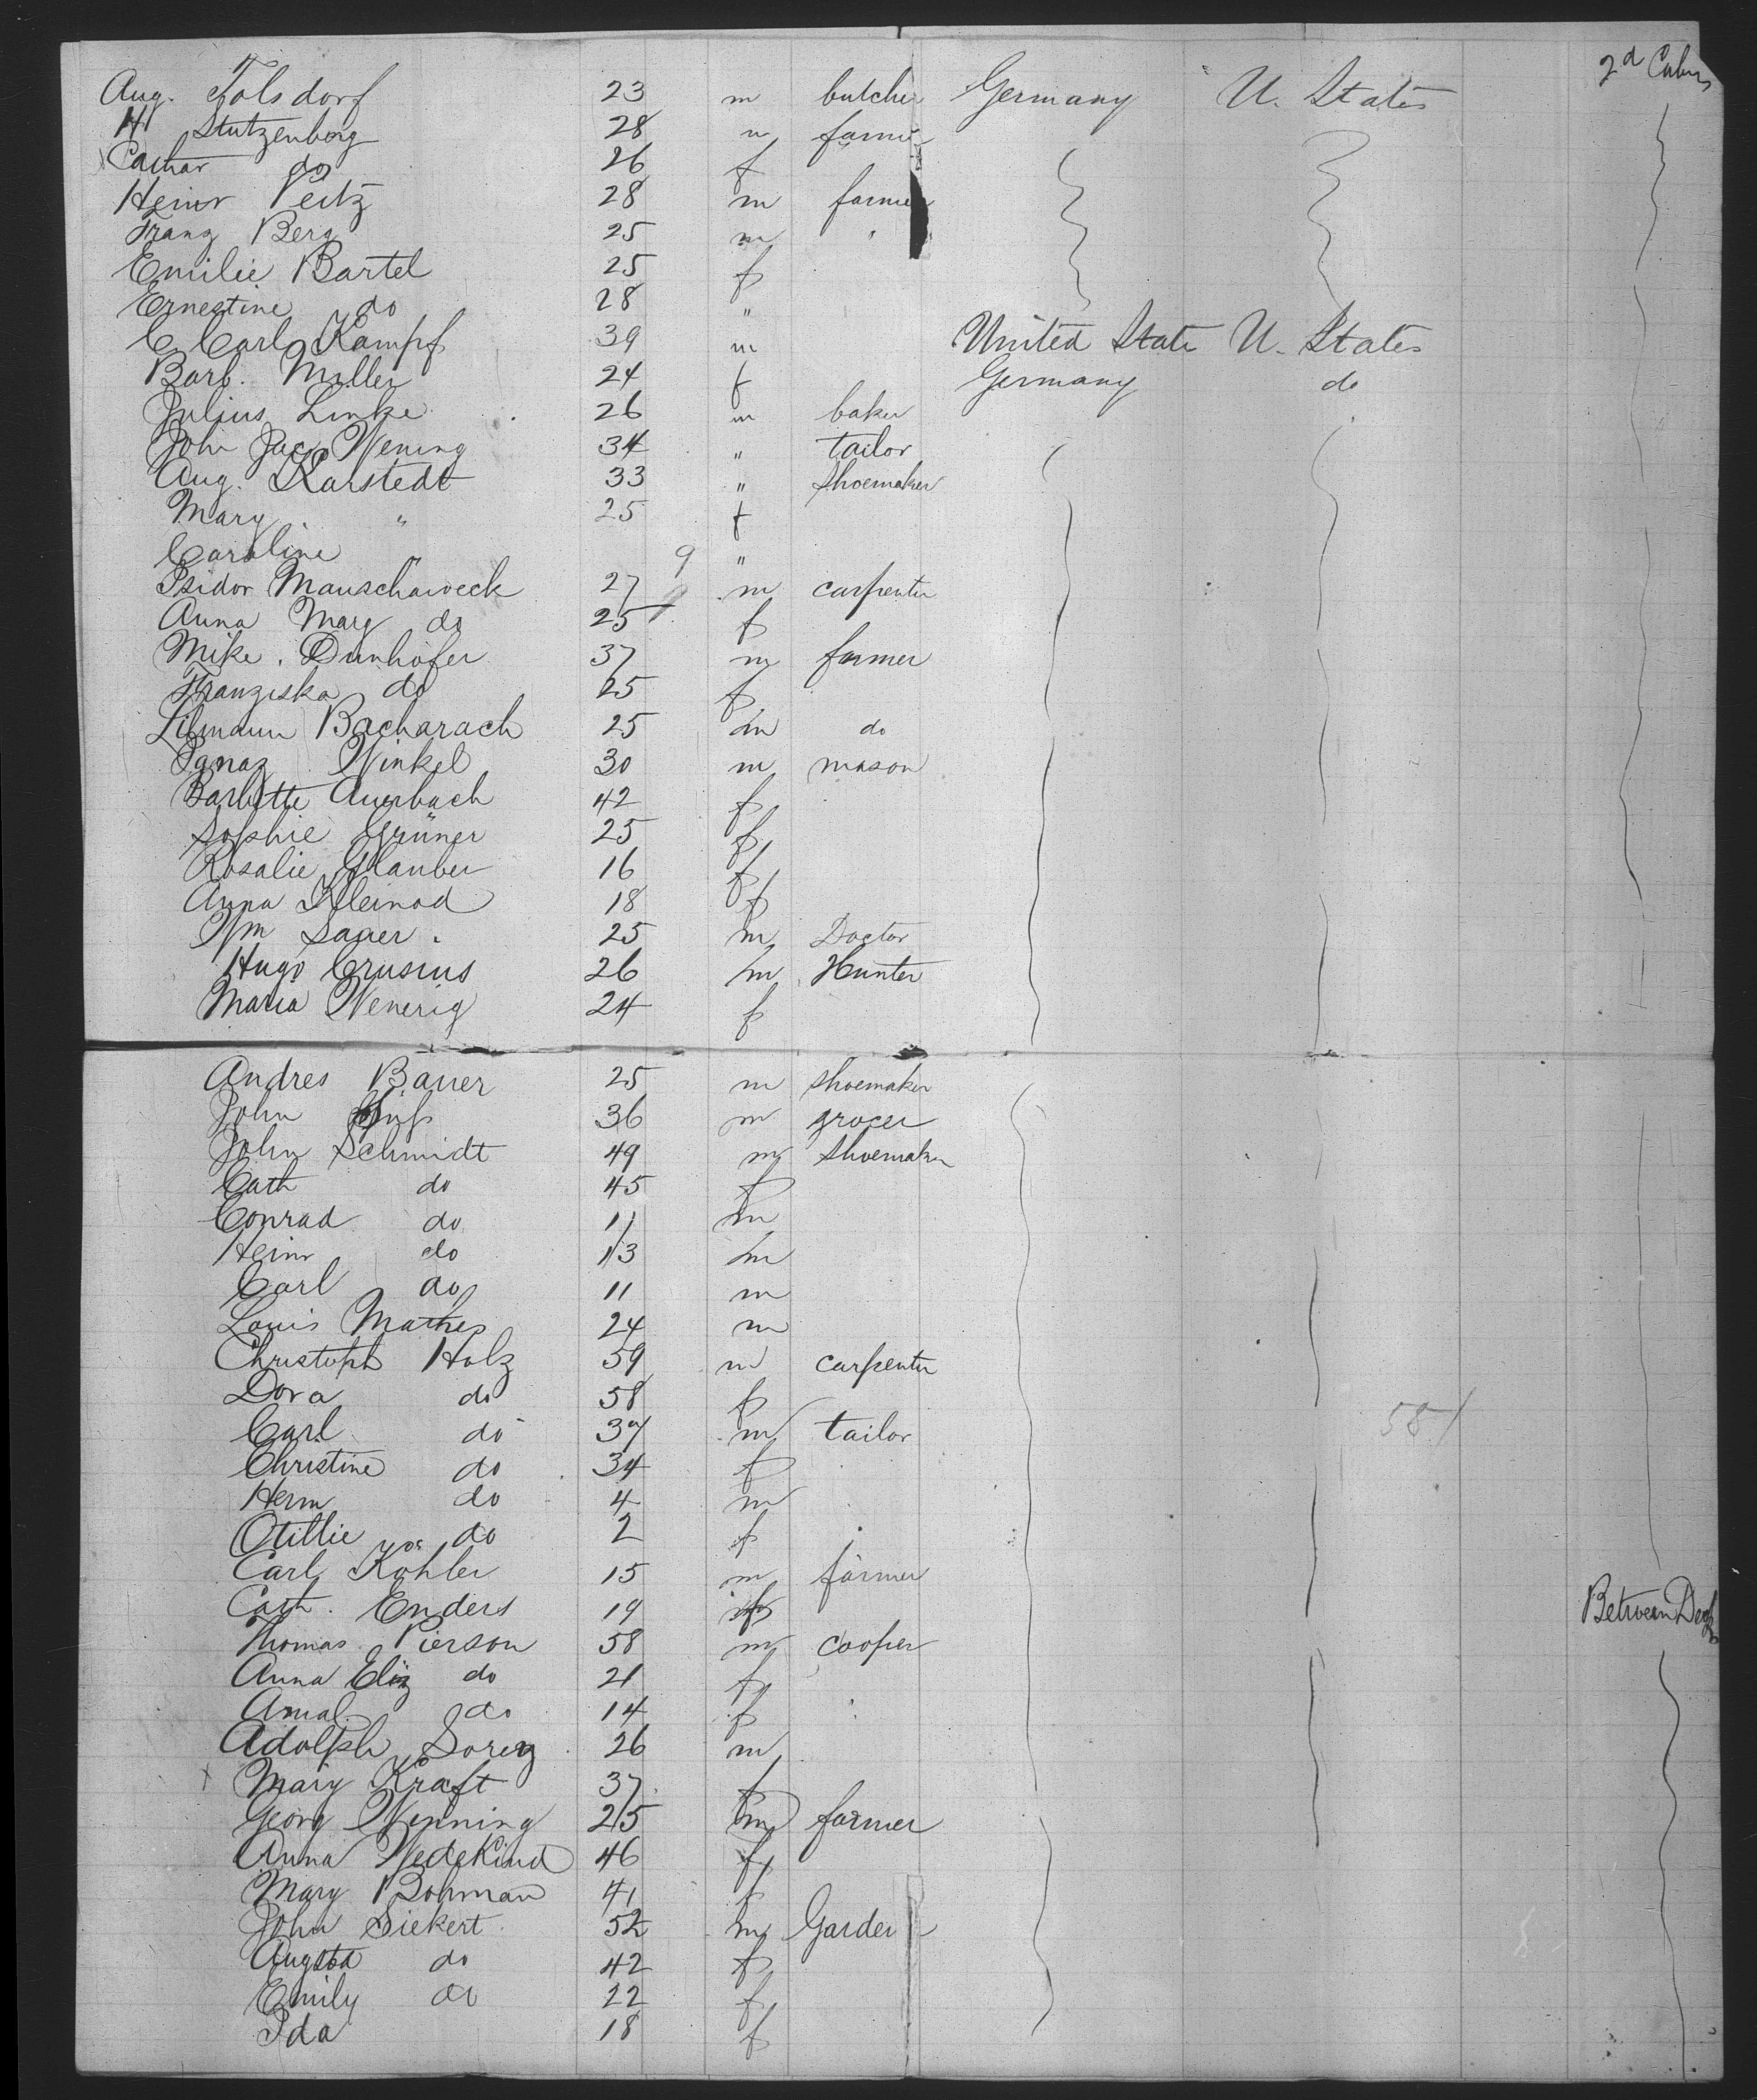 2d Cabin
Aug. Tolsdorf 23 m butcher Germany U. States
H Stutzenberg 28 m farmer
Cathar do 26 f
Heinr Peitz 28 m farmer
Franz Berg 25 m "
Emilie Bartel 25 f
Ernestine do 28 "
C Carl Kampf 39 m United State U. States
Barb. Muller 24 f Germany do
Julius Linke 26 m baker
John Jac Wening 34 " tailor
Aug. Karstedt 33 " Shoemaker
Mary " 25 f
Caroline " 9 "
Isidor Mauschaweck 27 m carpenter
Anna Marg do 25 f
Mike. Dunhofer 37 m farmer
Franziska do 25 f
Litmann Bacharach 25 m do
Ignaz Winkel 30 m mason
Barbette Auerbach 42 f
Sophie Grüner 25 f
Rosalie Glauber 16 f
Anna Kleinod 18 f
Wm Sauer. 25 m Doctor
Hugo Crusius 26 m Hunter
Maria Wenerig 24 f
Andres Bauer 25 m shoemaker
John 36 m grocer
John Schmidt 49 m Shoemaker
Cath do 45 f
Conrad do 11 m
Heinr do 13 m
Carl do 11 m
Louis Mathes 24 m
Christoph Holz 59 m carpenter
Dora do 58 f
Carl do 37 m tailor
Christine do 34 f
Herm do 4 m
Otillie do 2 f
Carl Köhler 15 m farmer
Cath. Enders 19 f Between Deck
Thomas Pierson 58 m cooper
Anna Eliz do 21 f
Amal. do 14 f
Adolph Soreng 26 m
Mary Kraft 37 f
Georg Wenning 25 m farmer
Anna Wedekind 46 f
Mary Bohman 41 f
John Siekert 52 m Garder
Augsta do 42 f
Emily do 22 f
Ida 18 f